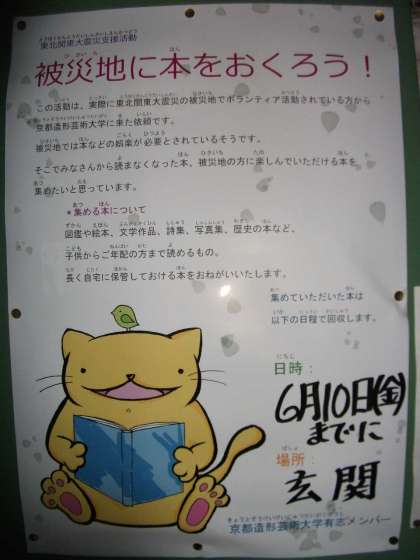 東北関東大震災支援活動
被災地に本をおくろう！
この活動は、実際に東北関東大震災の被災地でボランティア活動されている方から
京都造形芸術大学に来た依頼です。
被災地では本などの娯楽が必要とされているそうです。
そこでみなさんから読まなくなった本、被災地の方に楽しんでいただける本を
集めたいと思っています。
*集める本について
図鑑や絵本、文学作品、詩集、写真集、歴史の本など、
子供からご年配の方まで読めるもの。
長く自宅に保管しておける本をおねがいいたします。
集めていただいた本は
以下の日程で回収します。
日時：
6月10日(金)
までに
場所：
玄関
京都造形芸術大学有志メンバー